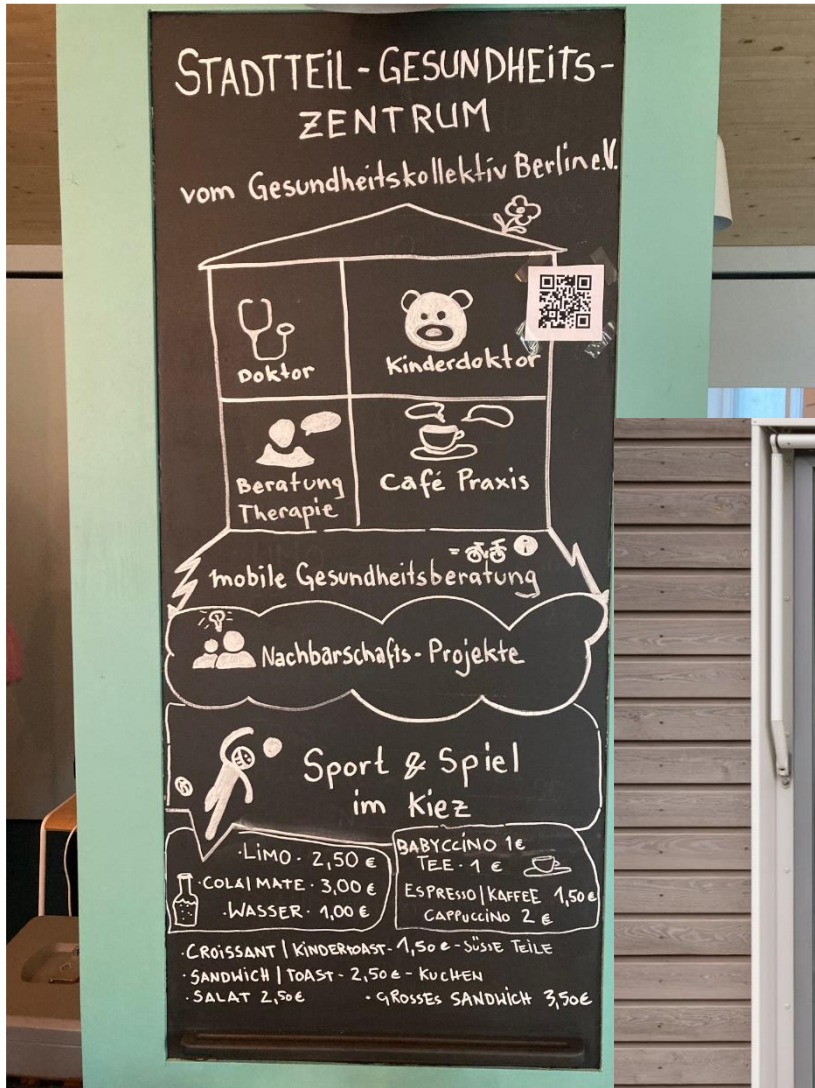 STADTTEIL-GESUNDHEITS-
ZENTRUM
vom Gesundheitskollektiv Berlin e.V.
Doktor
Kinderdoktor
Beratung
Therapie
Café Praxis
mobile Gesundheitsberatung
Nachbarschafts-Projekte
Sport & Spiel
im Kiez
·LIMO · 2,50 €
·COLA | MATE · 3,00 €
·WASSER · 1,00 €
BABYCCINO 1€
TEE · 1 €
ESPRESSO | KAFFEE 1,50€
CAPPUCCINO 2 €
·CROISSANT | KINDERTOAST - 1,50 € - SÜSSE TEILE
·SANDWICH | TOAST - 2,50€ - KUCHEN
·SALAT 2,50€
·GROSSES SANDWICH 3,50€